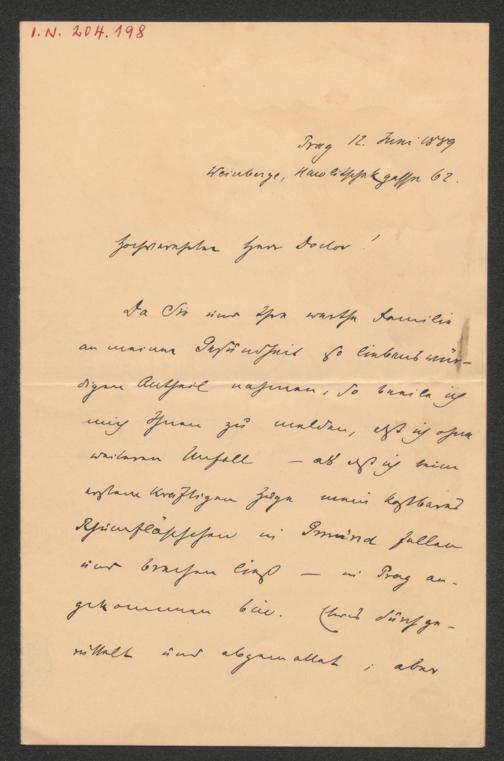 I.N. 204.198
Prag 12. Juni 1889
Weinberge, Hawlitschekgasse 62.
Hochverehrter Herr Doctor!
Da Sie und Ihre werthe Familie
an meiner Gesundheit so liebenswür-
digen Antheil nahmen, so beeile ich
mich Ihnen zu melden, daß ich ohne
weiteren Unfall – als daß ich beim
ersten kräftigen Zuge mein kostbares
Rhumfläschchen in Gmünd fallen
und brechen ließ – in Prag an-
gekommen bin. Etwas durchge-
rüttelt und abgemattet, aber